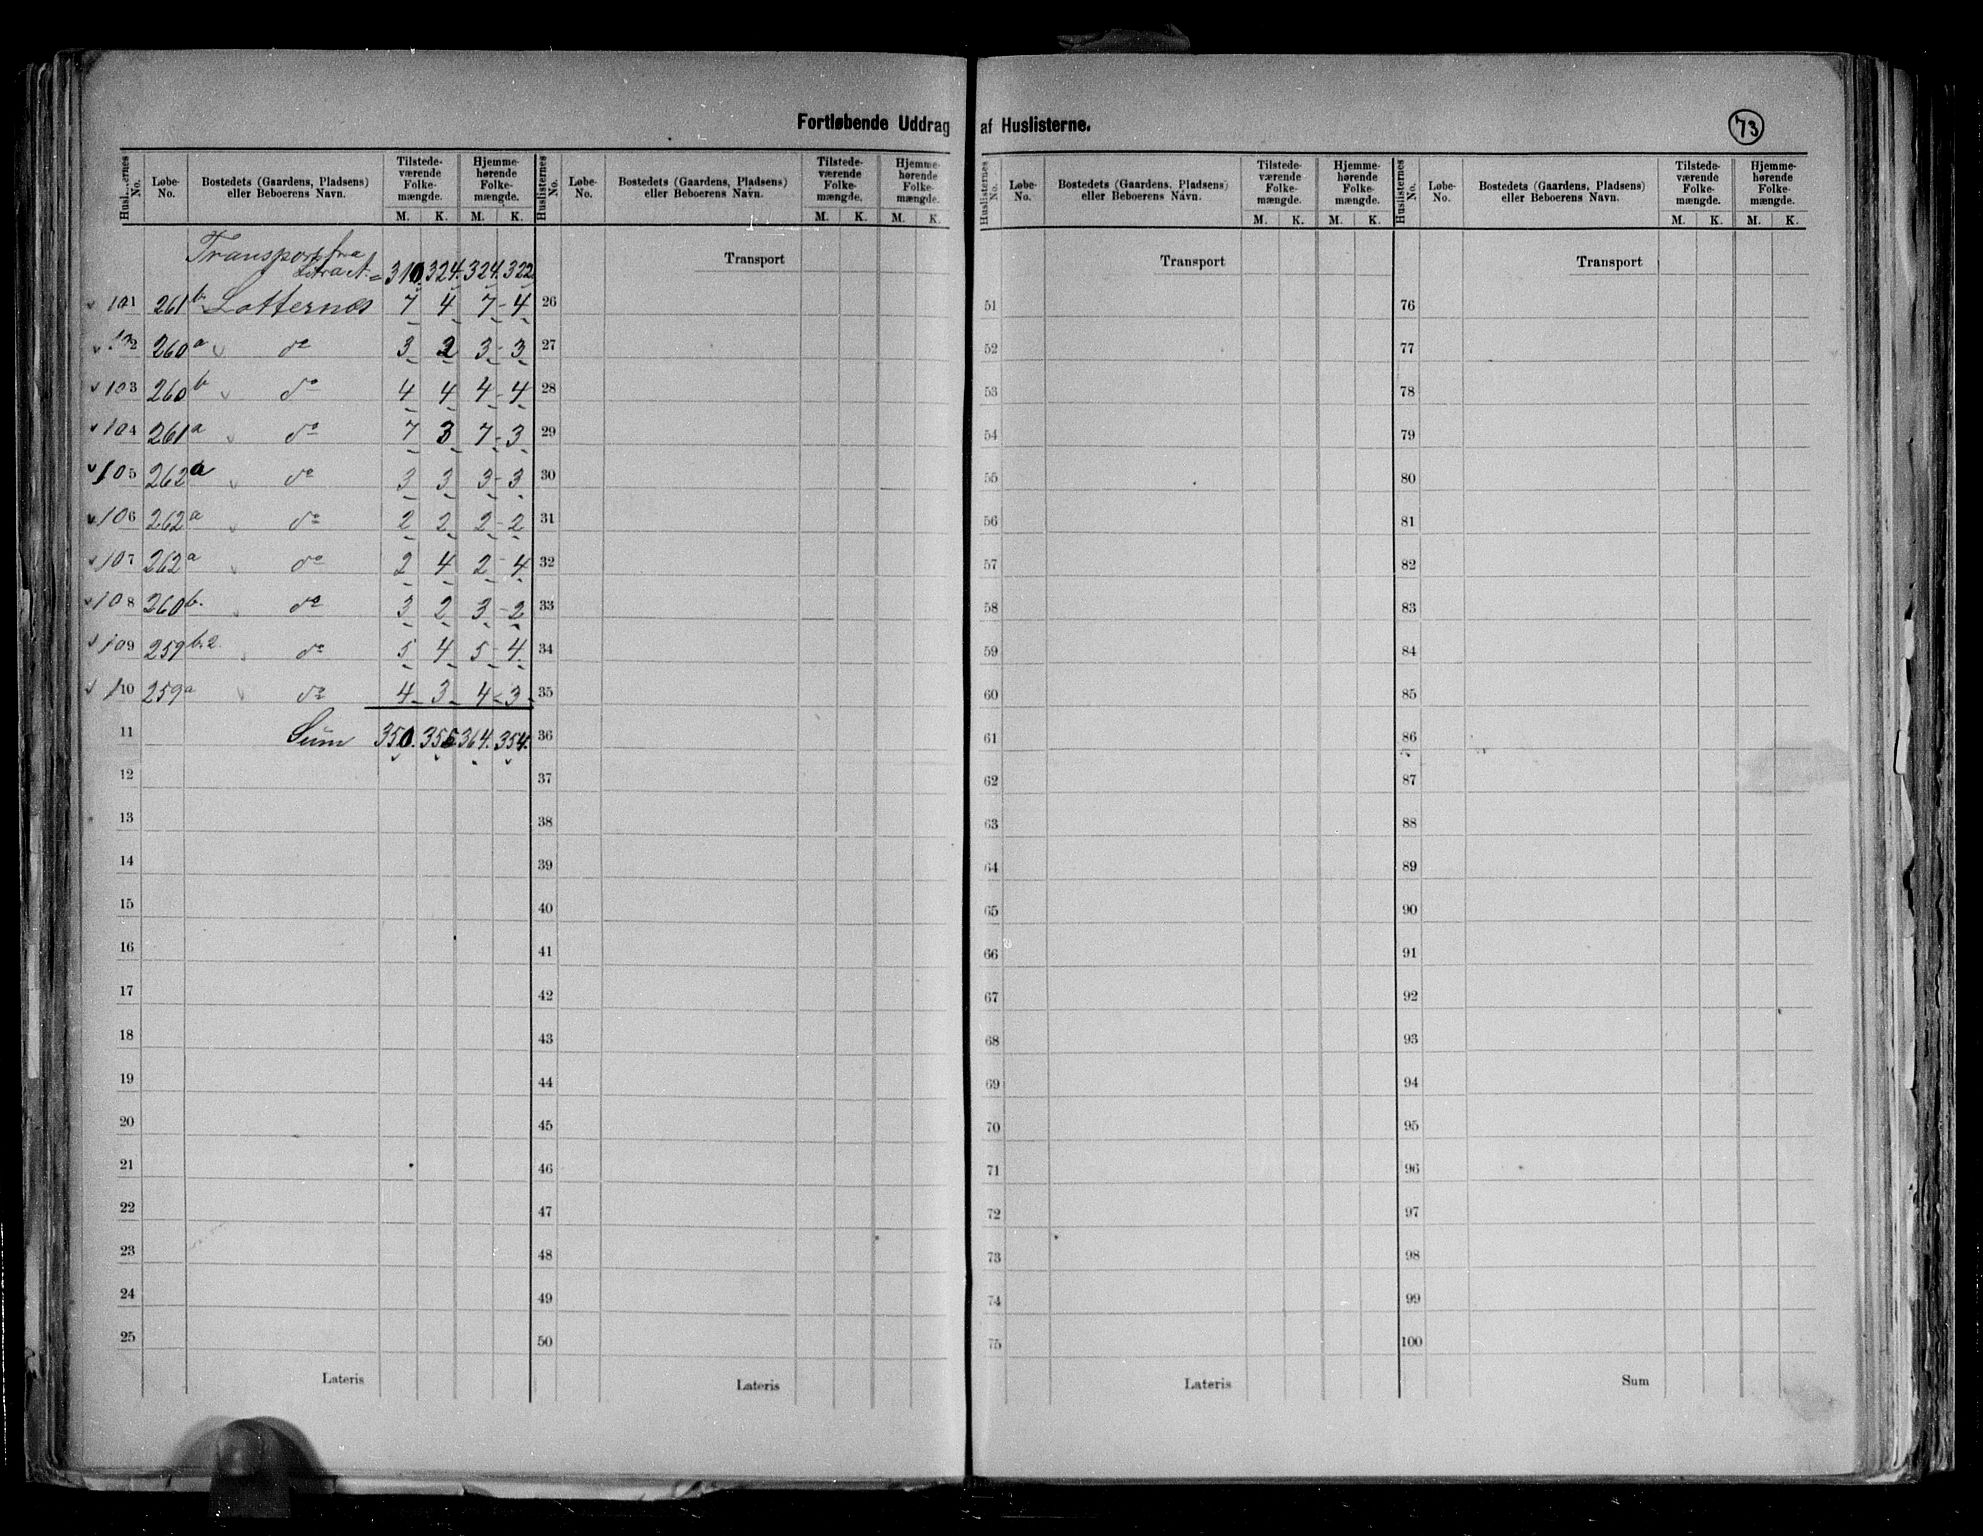 Fortløbende Uddrag af Huslisterne.
73
Huslisternes No. Løbe-No. Bostedets (Gaardens, Pladsens) eller Beboerens Navn. Tilstede-værende Folke-mængde. M. K. Hjemme-hørende Folke-mængde. M. K.
Transport fra
310. 324. 324. 322
101 261 b Lotternes 7 4 7 - 4
102 260 a do 3 2 3 - 3
103 260 b do 4 4 4 - 4
104 261 a do 7 3 7 - 3
105 262 a do 3 3 3 - 3
106 262 a do 2 2 2 - 2
107 262 a do 2 4 2 - 4
108 260 b. do 3 2 3 - 2
109 259 b.2. do 5 4 5 - 4
110 259 a do 4 3 4 3
11 Sum 350. 355 364. 354.
12
13
14
15
16
17
18
19
20
21
22
23
24
25
Lateris
Huslisternes No. Løbe-No. Bostedets (Gaardens, Pladsens) eller Beboerens Navn. Tilstede-værende Folke-mængde. M. K. Hjemme-hørende Folke-mængde. M. K.
Transport
26
27
28
29
30
31
32
33
34
35
36
37
38
39
40
41
42
43
44
45
46
47
48
49
50
Lateris
Huslisternes No. Løbe-No. Bostedets (Gaardens, Pladsens) eller Beboerens Navn. Tilstede-værende Folke-mængde. M. K. Hjemme-hørende Folke-mængde. M. K.
Transport
51
52
53
54
55
56
57
58
59
60
61
62
63
64
65
66
67
68
69
70
71
72
73
74
75
Lateris
Huslisternes No. Løbe-No. Bostedets (Gaardens, Pladsens) eller Beboerens Navn. Tilstede-værende Folke-mængde. M. K. Hjemme-hørende Folke-mængde. M. K.
Transport
76
77
78
79
80
81
82
83
84
85
86
87
88
89
90
91
92
93
94
95
96
97
98
99
100
Sum